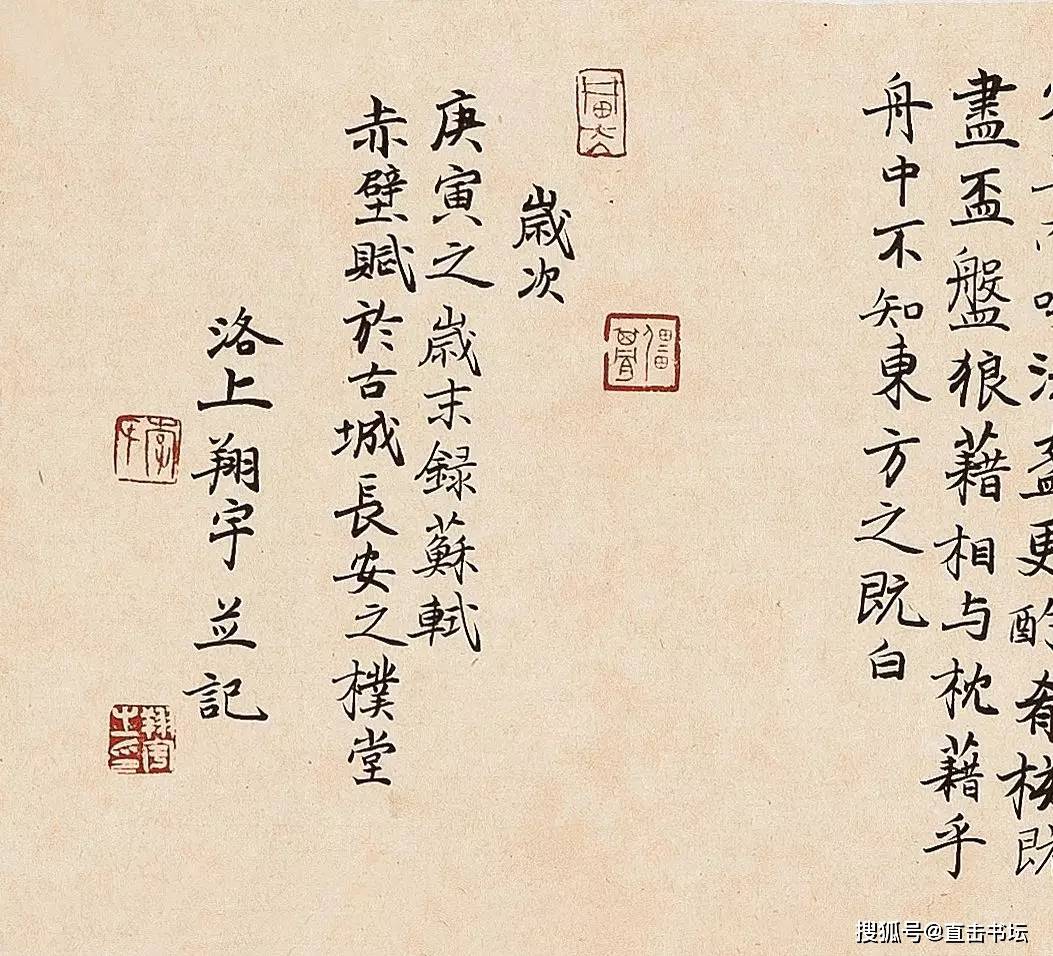 更酌肴核既
盡盃盤狼藉相与枕藉乎
舟中不知東方之既白
歲次
庚寅之歲末録蘇軾
赤壁賦於古城長安之樸堂
洛上翔宇並記
搜狐号@直击书坛